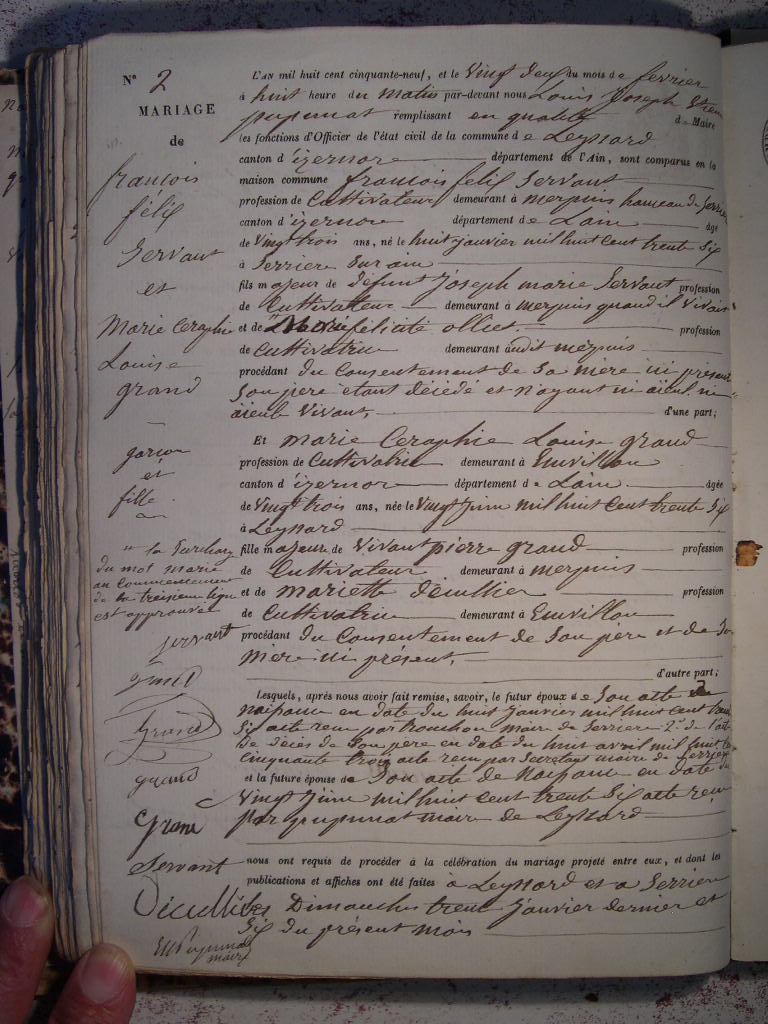 N° 2
MARIAGE
de
françois
félix
Servant
et
Marie Ceraphie
Louise
grand
garçon
et
fille
" la Surcharge
du mot marie
au Commencement
de la treisieme ligne
est approuvée
Servant
Grand
grand
Grand
Servant
Décullier
maire
L'AN mil huit cent cinquante-neuf, et le Vingt deux du mois de février
à huit heure du matin par-devant nous Louis Joseph
pupunat remplissant en qualité de Maire
les fonctions d'Officier de l'état civil de la commune de Leyssard
canton d'izernore département de l'Ain, sont comparus en la
maison commune françois félix Servant
profession de Cultivateur demeurant à merpuis hameau de Serrières
canton d'izernore département de Lain âgé
de Vingt trois ans, né le huit janvier mil huit cent trente Six
à Serriere Sur ain
fils majeur de défunt Joseph marie Servant profession
de Cultivateur demeurant à merpuis quand il Vivait
et de Marie félicité olliet profession
de Cultivatrice demeurant audit merpuis
procédant du Consentement de Sa mère ici présente
Son père étant décédé et n'ayant ni aïeul ni
aïeule Vivant, d'une part;
Et marie Ceraphie Louise grand
profession de Cultivatrice demeurant à Emvillon
canton d'izernore département de Lain âgée
de Vingt trois ans, née le Vingt Juin mil huit Cent trente Six
à Leyssard
fille majeure de Vivant pierre grand profession
de Cultivateur demeurant à merpuis
et de mariette décullier profession
de Cultivatrice demeurant à Emvillon
procédant du Consentement de Son père et de Sa
mère ici présent, d'autre part;
Lesquels, après nous avoir fait remise, savoir, le futur époux de Son acte de
naissance en date du huit Janvier mil huit cent trente
Six acte reçu par trouchon maire de Serriere 2° de l'acte
de décès de Son père en date du huit avril mil huit cent
cinquante trois acte reçu par Secretays maire de Serriere
et la future épouse de Son acte de Naissance en date du
Vingt Juin mil huit Cent trente Six acte reçu
par pupunat maire de Leyssard
nous ont requis de procéder à la célébration du mariage projeté entre eux, et dont les
publications et affiches ont été faites à Leyssard et a Serriere
les Dimanches trente Janvier dernier et
Six du présent mois